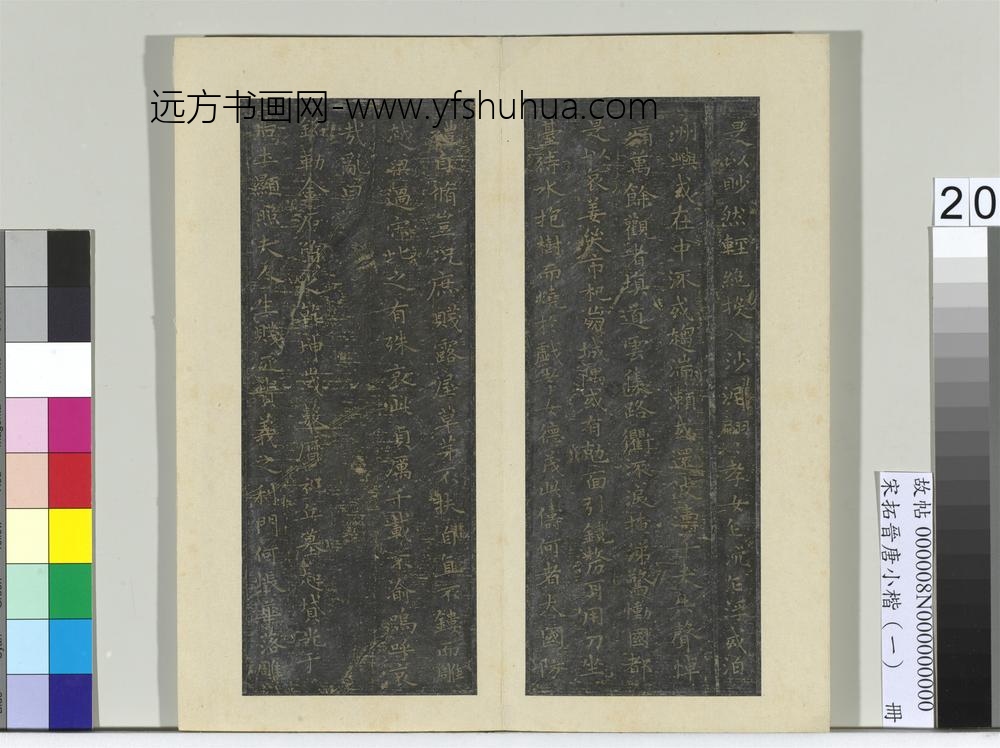 远方书画网-www.yfshuhua.com
20
故帖 000008N000000000
宋拓晋唐小楷（一） 冊
是以眇然輕絕投入沙泥翩翩孝女乍沉乍浮或泊
洲嶼或在中流或趨湍瀨或還波濤千夫失聲悼
痛萬餘觀者填道雲集路衢泣淚掩涕驚慟國都
是以哀姜哭市杞崩城隅或有剋面引鏡剺耳用刀坐
臺待水抱樹而燒於戲孝女德茂此儔何者大國防
禮自脩豈況庶賤露屋草茅不扶自直不鏤而雕
越梁過宋比之有殊哀此貞厲千載不渝嗚呼哀
哉亂曰
銘勒金石質之乾坤歲數曆祀丘墓起墳光于
后土顯照夫人生賤死貴義之利門何悵華落雕